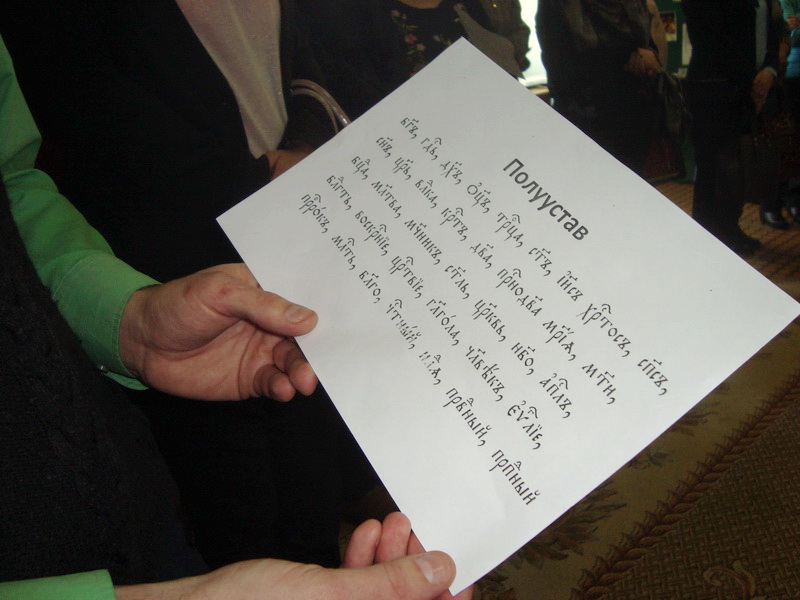 Полуустав
бг҃ъ, гдⷭ҇ь, дх҃ъ, ѻ҆ц҃ъ, трⷪ҇ца, ст҃ъ, і҆и҃съ хрⷭ҇тосъ, сп҃съ,
сн҃ъ, цр҃ь, влⷣка, крⷭ҇тъ, дв҃а, прⷭ҇нодв҃а мр҃іѧ, мт҃и,
бцⷣа, мл҃тва, мч҃никъ, ст҃ль, цр҃квь, нб҃о, а҆пⷭ҇лъ,
блгⷣть, воскрⷭ҇нїе, црⷭ҇твїе, гл҃гола, чл҃вѣкъ, є҆ѵⷢ҇лїе,
прⷪ҇рокъ, млⷭ҇ть, бл҃го, чⷭ҇тный, првⷣный, прпⷣный